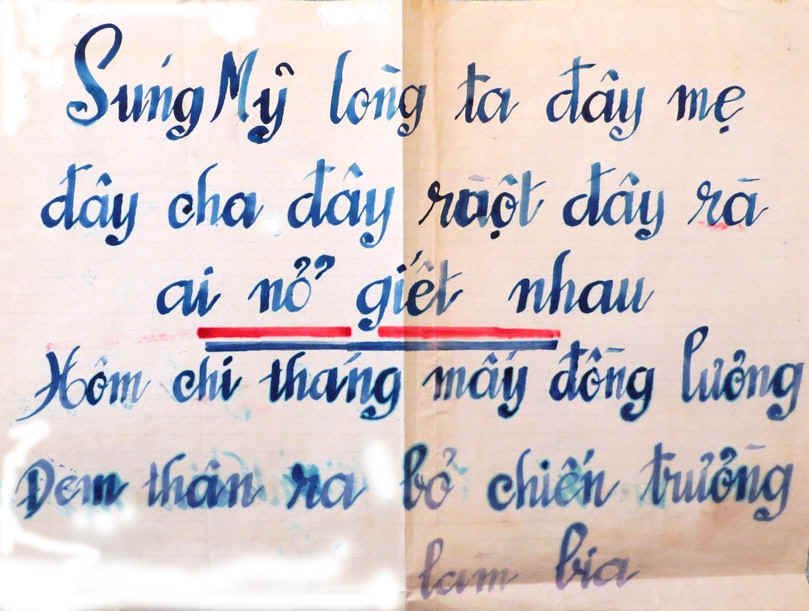 Súng Mỹ lòng ta đây mẹ
đây cha đây ruột đây rà
ai nở giết nhau
Hôm chi tháng mấy đồng lưởng
Đem thân ra bỏ chiến trưởng
làm bia